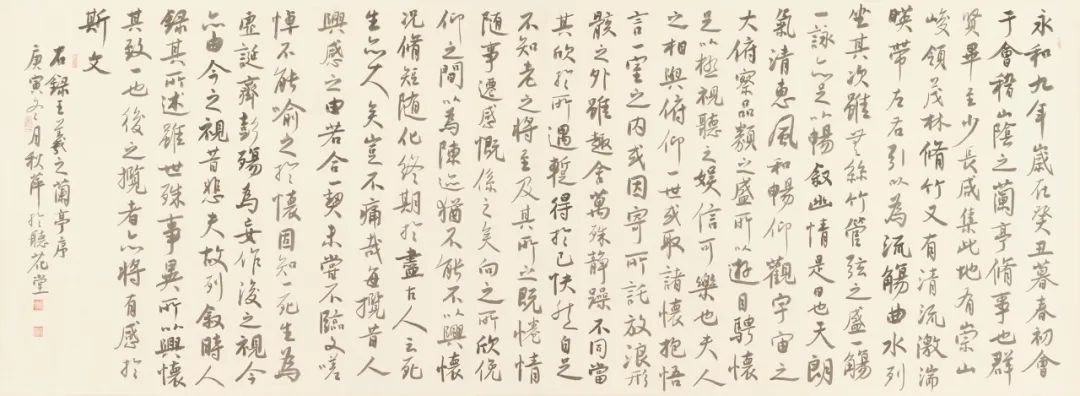 永和九年歲在癸丑暮春初會
于會稽山陰之蘭亭脩事也群
賢畢至少長咸集此地有崇山
峻領茂林脩竹又有清流激湍
暎帶左右引以為流觴曲水列
坐其次雖無絲竹管弦之盛一觴
一詠亦足以暢叙幽情是日也天朗
氣清惠風和暢仰觀宇宙之
大俯察品類之盛所以遊目騁懷
足以極視聽之娛信可樂也夫人
之相與俯仰一世或取諸懷抱悟
言一室之内或因寄所託放浪形
骸之外雖趣舍萬殊静躁不同當
其欣於所遇暫得於己快然自足
不知老之將至及其所之既惓情
隨事遷感慨係之矣向之所欣俛
仰之間以為陳迹猶不能不以興懷
況脩短隨化終期於盡古人云死
生亦大矣豈不痛哉每攬昔人
興感之由若合一契未嘗不臨文嗟
悼不能喻之於懷固知一死生為
虛誕齊彭殤為妄作後之視今
亦由今之視昔悲夫故列叙時人
錄其所述雖世殊事異所以興懷
其致一也後之攬者亦將有感於
斯文
右録王羲之蘭亭序
庚寅冬月秋萍於聽花堂